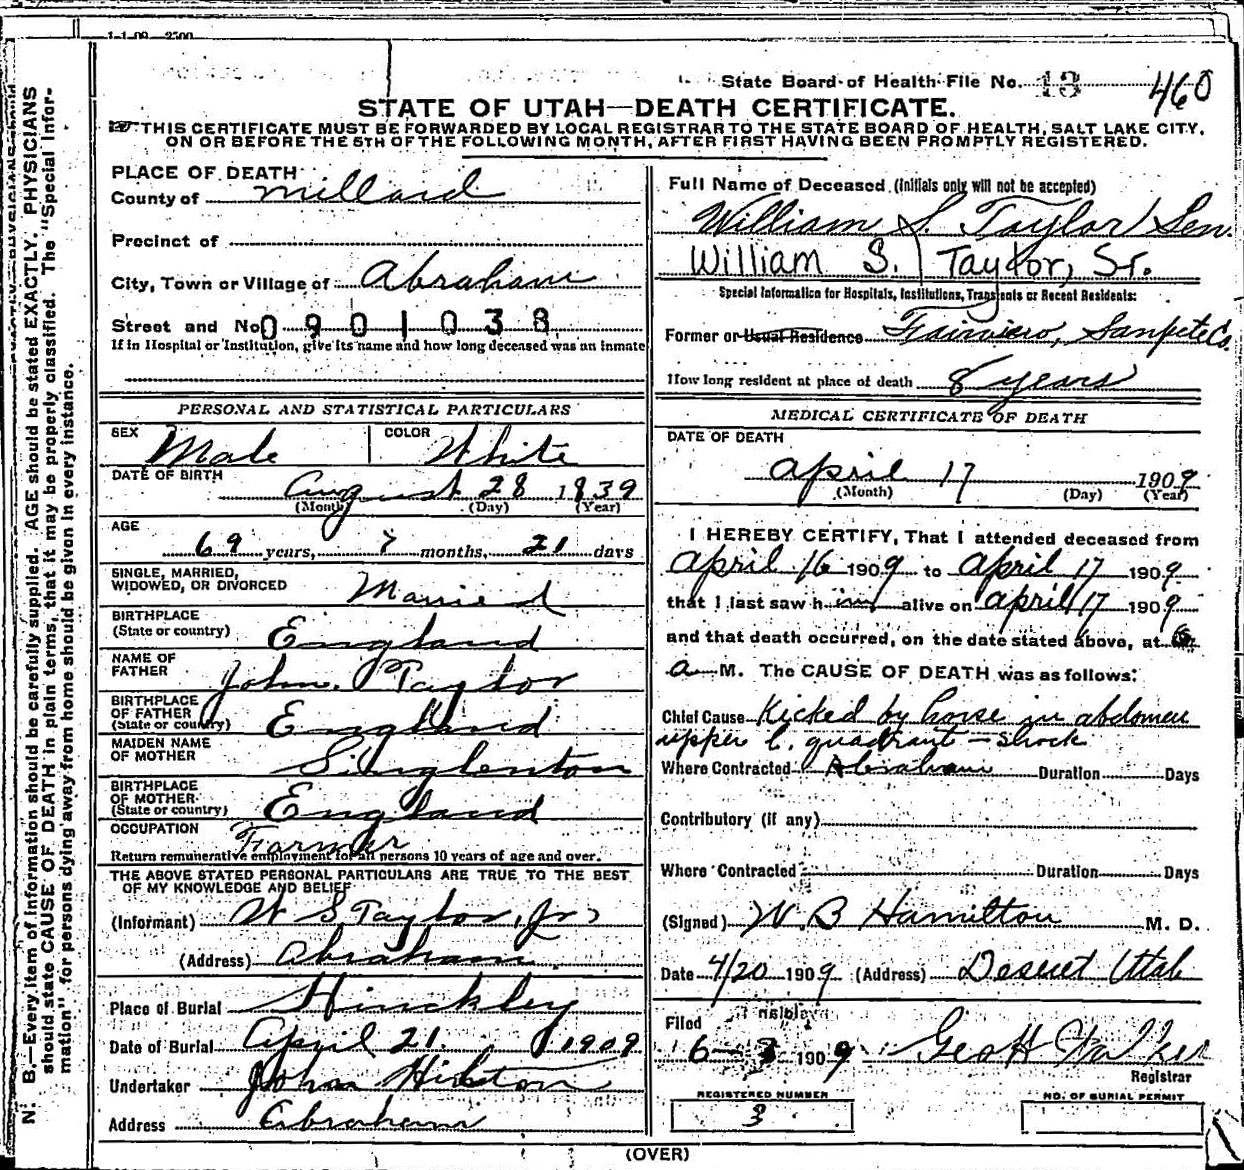 1-1-09—2500
State Board of Health File No. 13 460
STATE OF UTAH—DEATH CERTIFICATE.
THIS CERTIFICATE MUST BE FORWARDED BY LOCAL REGISTRAR TO THE STATE BOARD OF HEALTH, SALT LAKE CITY,
ON OR BEFORE THE 5TH OF THE FOLLOWING MONTH, AFTER FIRST HAVING BEEN PROMPTLY REGISTERED.
N. B.—Every item of information should be carefully supplied. AGE should be stated EXACTLY. PHYSICIANS
should state CAUSE OF DEATH in plain terms, that it may be properly classified. The "Special Infor-
mation" for persons dying away from home should be given in every instance.
PLACE OF DEATH
County of Millard
Precinct of
City, Town or Village of Abraham
Street and No. 0901038
If in Hospital or Institution, give its name and how long deceased was an inmate
PERSONAL AND STATISTICAL PARTICULARS
SEX Male COLOR White
DATE OF BIRTH
August 28 1839
(Month) (Day) (Year)
AGE
69 years, 7 months, 21 days
SINGLE, MARRIED,
WIDOWED, OR DIVORCED Married
BIRTHPLACE
(State or country) England
NAME OF
FATHER John Taylor
BIRTHPLACE
OF FATHER
(State or country) England
MAIDEN NAME
OF MOTHER Singlenton
BIRTHPLACE
OF MOTHER
(State or country) England
OCCUPATION Farmer
Return remunerative employment for all persons 10 years of age and over.
THE ABOVE STATED PERSONAL PARTICULARS ARE TRUE TO THE BEST
OF MY KNOWLEDGE AND BELIEF
(Informant) W S Taylor, Jr
(Address) Abraham
Place of Burial Hinckley
Date of Burial April 21 1909
Undertaker John Hilston
Address Abraham
Full Name of Deceased (Initials only will not be accepted)
William S. Taylor Sen.
William S. Taylor, Sr.
Special Information for Hospitals, Institutions, Transients or Recent Residents:
Former or Usual Residence Fairview, Sanpete Co.
How long resident at place of death 8 years
MEDICAL CERTIFICATE OF DEATH
DATE OF DEATH
April 17 1909
(Month) (Day) (Year)
I HEREBY CERTIFY, That I attended deceased from
April 16 1909 to April 17 1909
that I last saw him alive on April 17 1909
and that death occurred, on the date stated above, at 6
a M. The CAUSE OF DEATH was as follows:
Chief Cause Kicked by horse in abdomen
upper l. quadrant — shock
Where Contracted Abraham Duration Days
Contributory (if any)
Where Contracted Duration Days
(Signed) W. B Hamilton M. D.
Date 4/20 1909 (Address) Deseret Utah
Filed
6-3 1909 Geo H Walker
Registrar
REGISTERED NUMBER
3
NO. OF BURIAL PERMIT
(OVER)